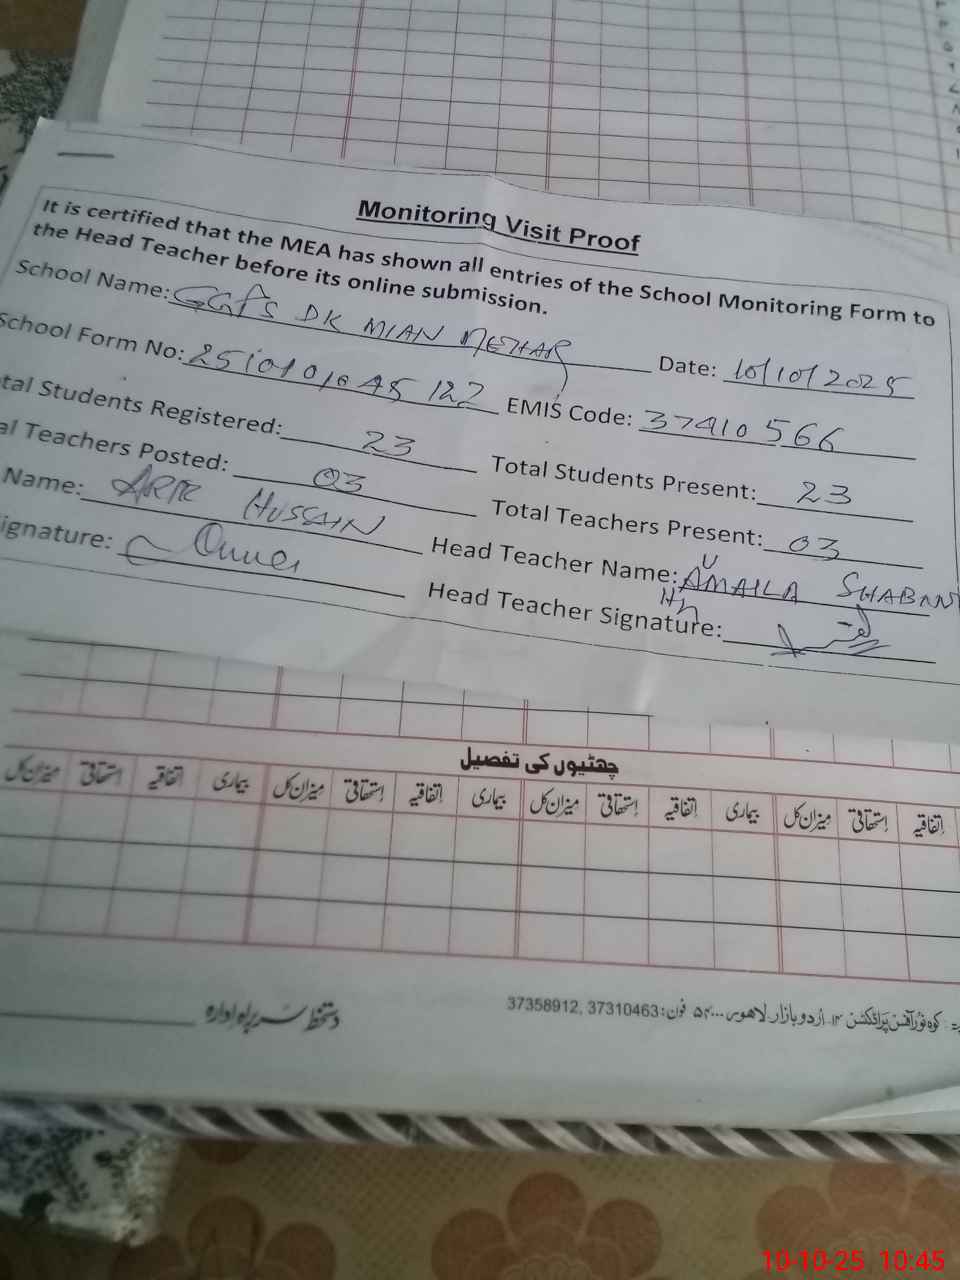 Monitoring Visit Proof
It is certified that the MEA has shown all entries of the School Monitoring Form to
the Head Teacher before its online submission.
School Name: GGPS DK MIAN MEHAR Date: 10/10/2025
School Form No: 122 EMIS Code: 37410566
tal Students Registered: 23 Total Students Present: 23
al Teachers Posted: 03 Total Teachers Present: 03
Name: HUSSAIN Head Teacher Name: SHABAN
ignature: Head Teacher Signature:
چھٹیوں کی تفصیل
اتفاقیہ استحقاقی میزان کل بیماری اتفاقیہ استحقاقی میزان کل بیماری اتفاقیہ استحقاقی میزان کل بیماری اتفاقیہ استحقاقی میزان کل
اردو بازار لاہور فون: 37310463 ,37358912
دستخط سربراہ ادارہ
10-10-25 10:45